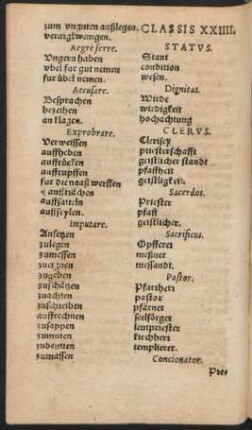 zum vnguten außlegen.
verargkwenigen.
Aegrè ferre.
Vngern haben
vbel fur gut nemen
fur übel nemen.
Accusare.
Besprachen
bezeihen
an klagen.
Exprobrare.
Verweissen
auffheben
auffrücken
auffrupffen
fur die nass werffen
auffsatteln
auffseylen.
Imputare.
Ansetzen
zulegen
zumessen
zueignen
zugeben
zuschützen
zuachten
zuschreiben
auffrechnen
zusappen
zumuten
zudeutten
zumassen
CLASSIS XXIIII.
STATVS.
Stant
condition
wesen.
Dignitas.
Wirde
wirdigkeit
hochachtung
CLERVS.
Clerisey
priesterschafft
geistlicher standt
pfaffheit
geistligkeit.
Sacerdos.
Priester
pfaff
geistlicher.
Sacrificus.
Opfferer
meßner
messandt.
Pastor.
Pfarrherr
pastor
pfarner
seelsörger
leutpriester
kirchherr
templierer.
Concionator.
Pre⸗